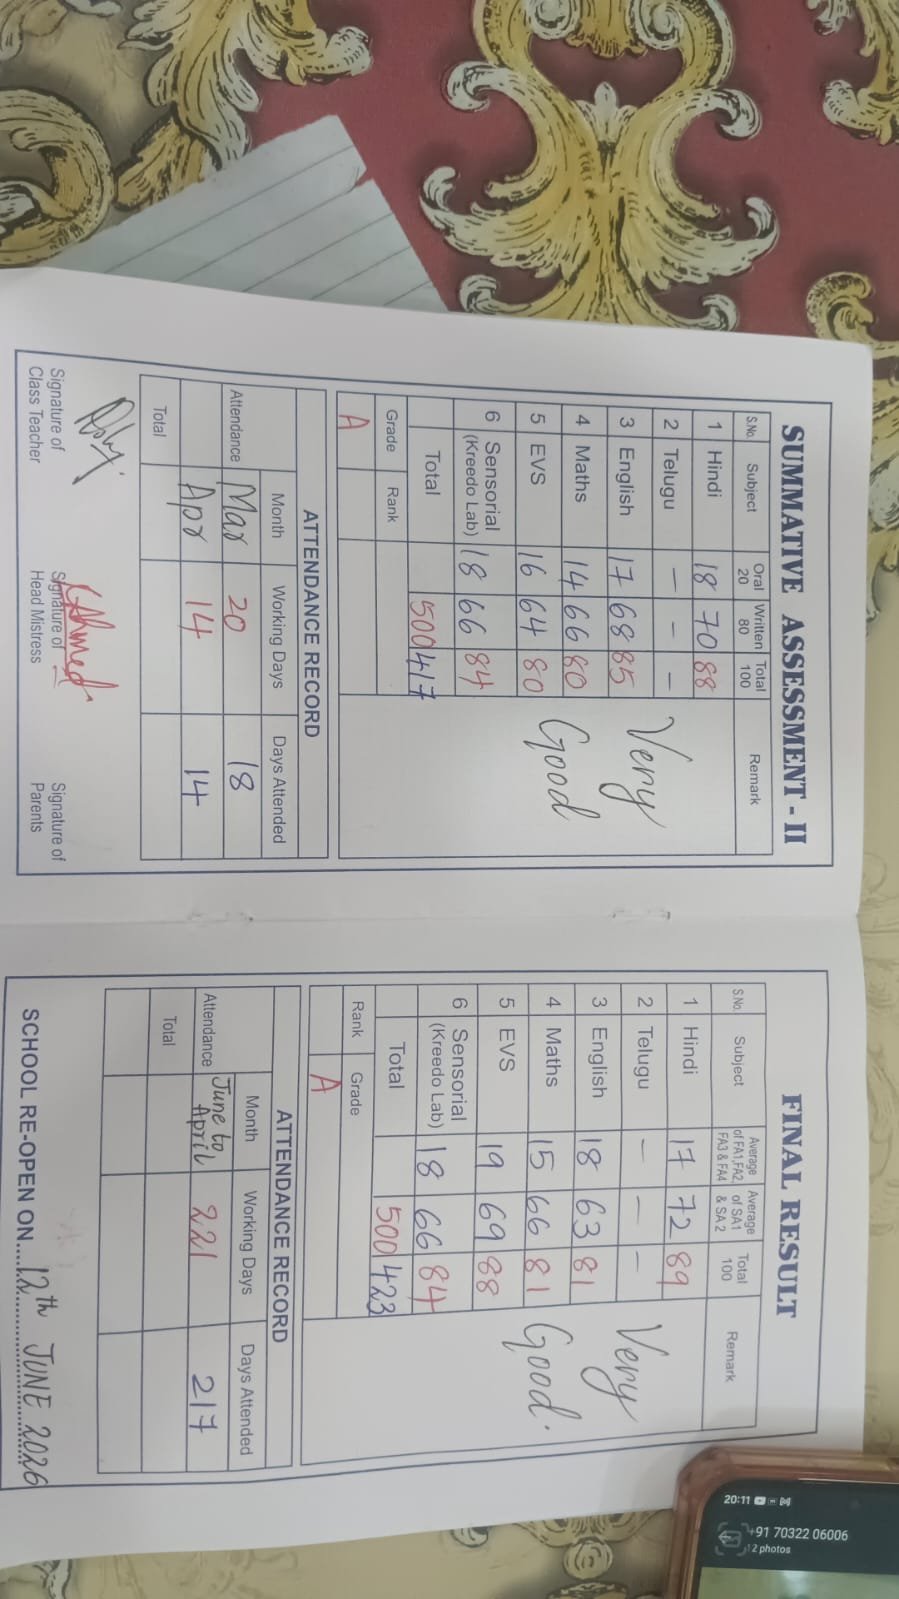 SUMMATIVE ASSESSMENT - II
S.No. Subject Oral 20 Written 80 Total 100 Remark
1 Hindi 18 70 88
2 Telugu - - -
3 English 17 68 85
4 Maths 14 66 80
5 EVS 16 64 80
6 Sensorial (Kreedo Lab) 18 66 84
Very
Good
Total 500 417
Grade Rank
A
ATTENDANCE RECORD
Attendance Month Working Days Days Attended
Mar 20 18
Apr 14 14
Total
Signature of Class Teacher
Signature of Head Mistress
Signature of Parents
FINAL RESULT
S.No. Subject Average of FA1, FA2, FA3 & FA4 Average of SA1 & SA2 Total 100 Remark
1 Hindi 17 72 89
2 Telugu - - -
3 English 18 63 81
4 Maths 15 66 81
5 EVS 19 69 88
6 Sensorial (Kreedo Lab) 18 66 84
Very
Good.
Total 500 423
Rank Grade
A
ATTENDANCE RECORD
Attendance Month Working Days Days Attended
June to April 221 217
Total
SCHOOL RE-OPEN ON.....12th JUNE 2026
20:11
+91 70322 06006
2 photos